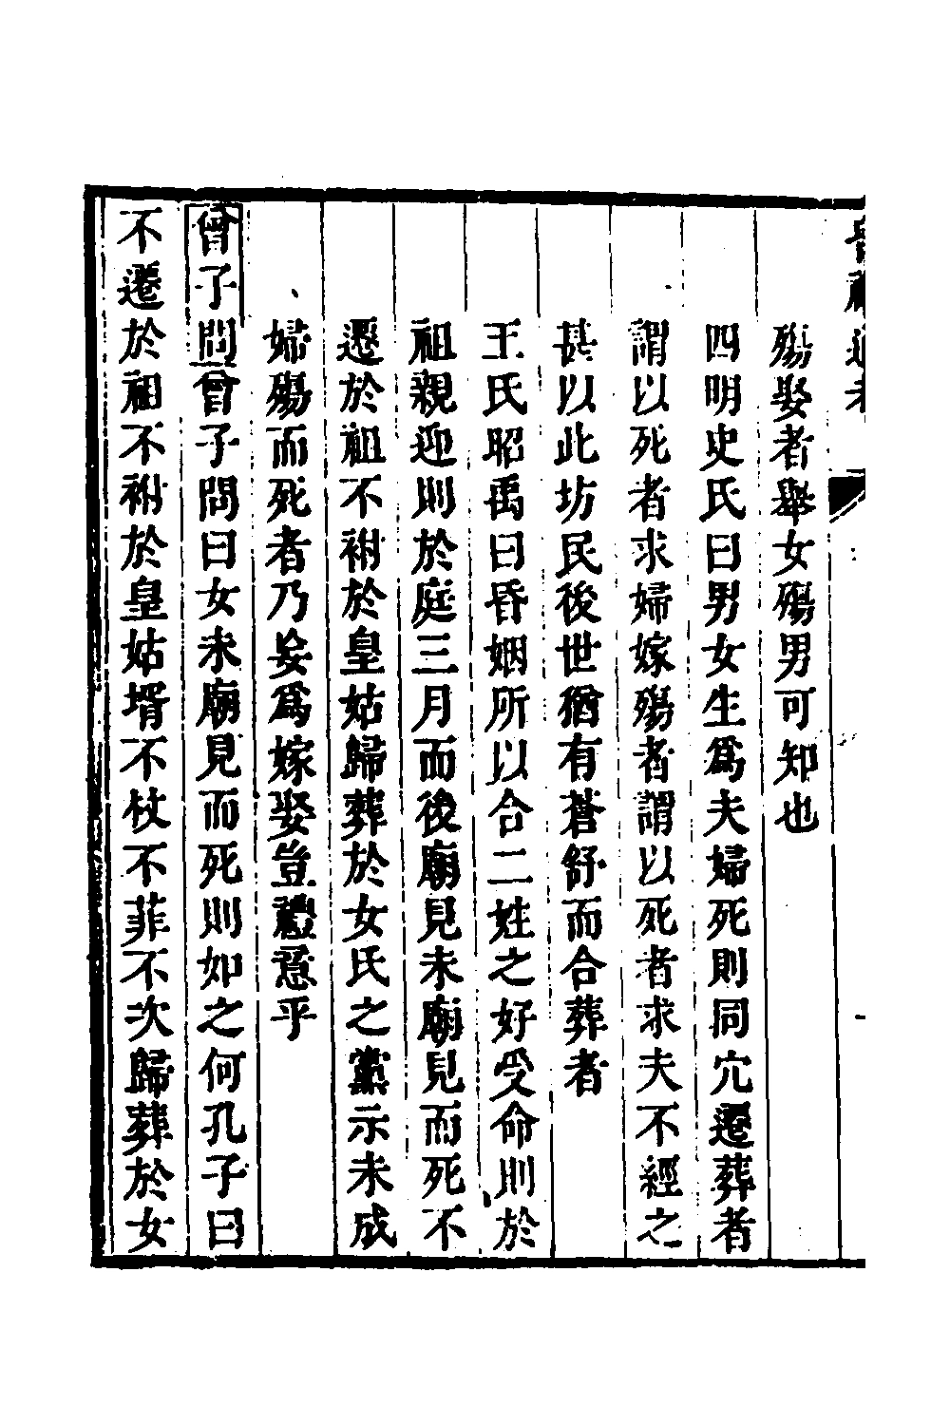 殤娶者舉女殤男可知也
四明史氏曰男女生爲夫婦死則同穴遷葬者
謂以死者求婦嫁殤者謂以死者求夫不經之
甚以此坊民後世猶有蒼舒而合葬者
王氏昭禹曰昏姻所以合二姓之好受命則於
祖親迎則於庭三月而後廟見未廟見而死不
遷於祖不祔於皇姑歸葬於女氏之黨示未成
婦殤而死者乃妄爲嫁娶豈禮意乎
曾子問曾子問曰女未廟見而死則如之何孔子曰
不遷於祖不祔於皇姑壻不杖不菲不次歸葬於女